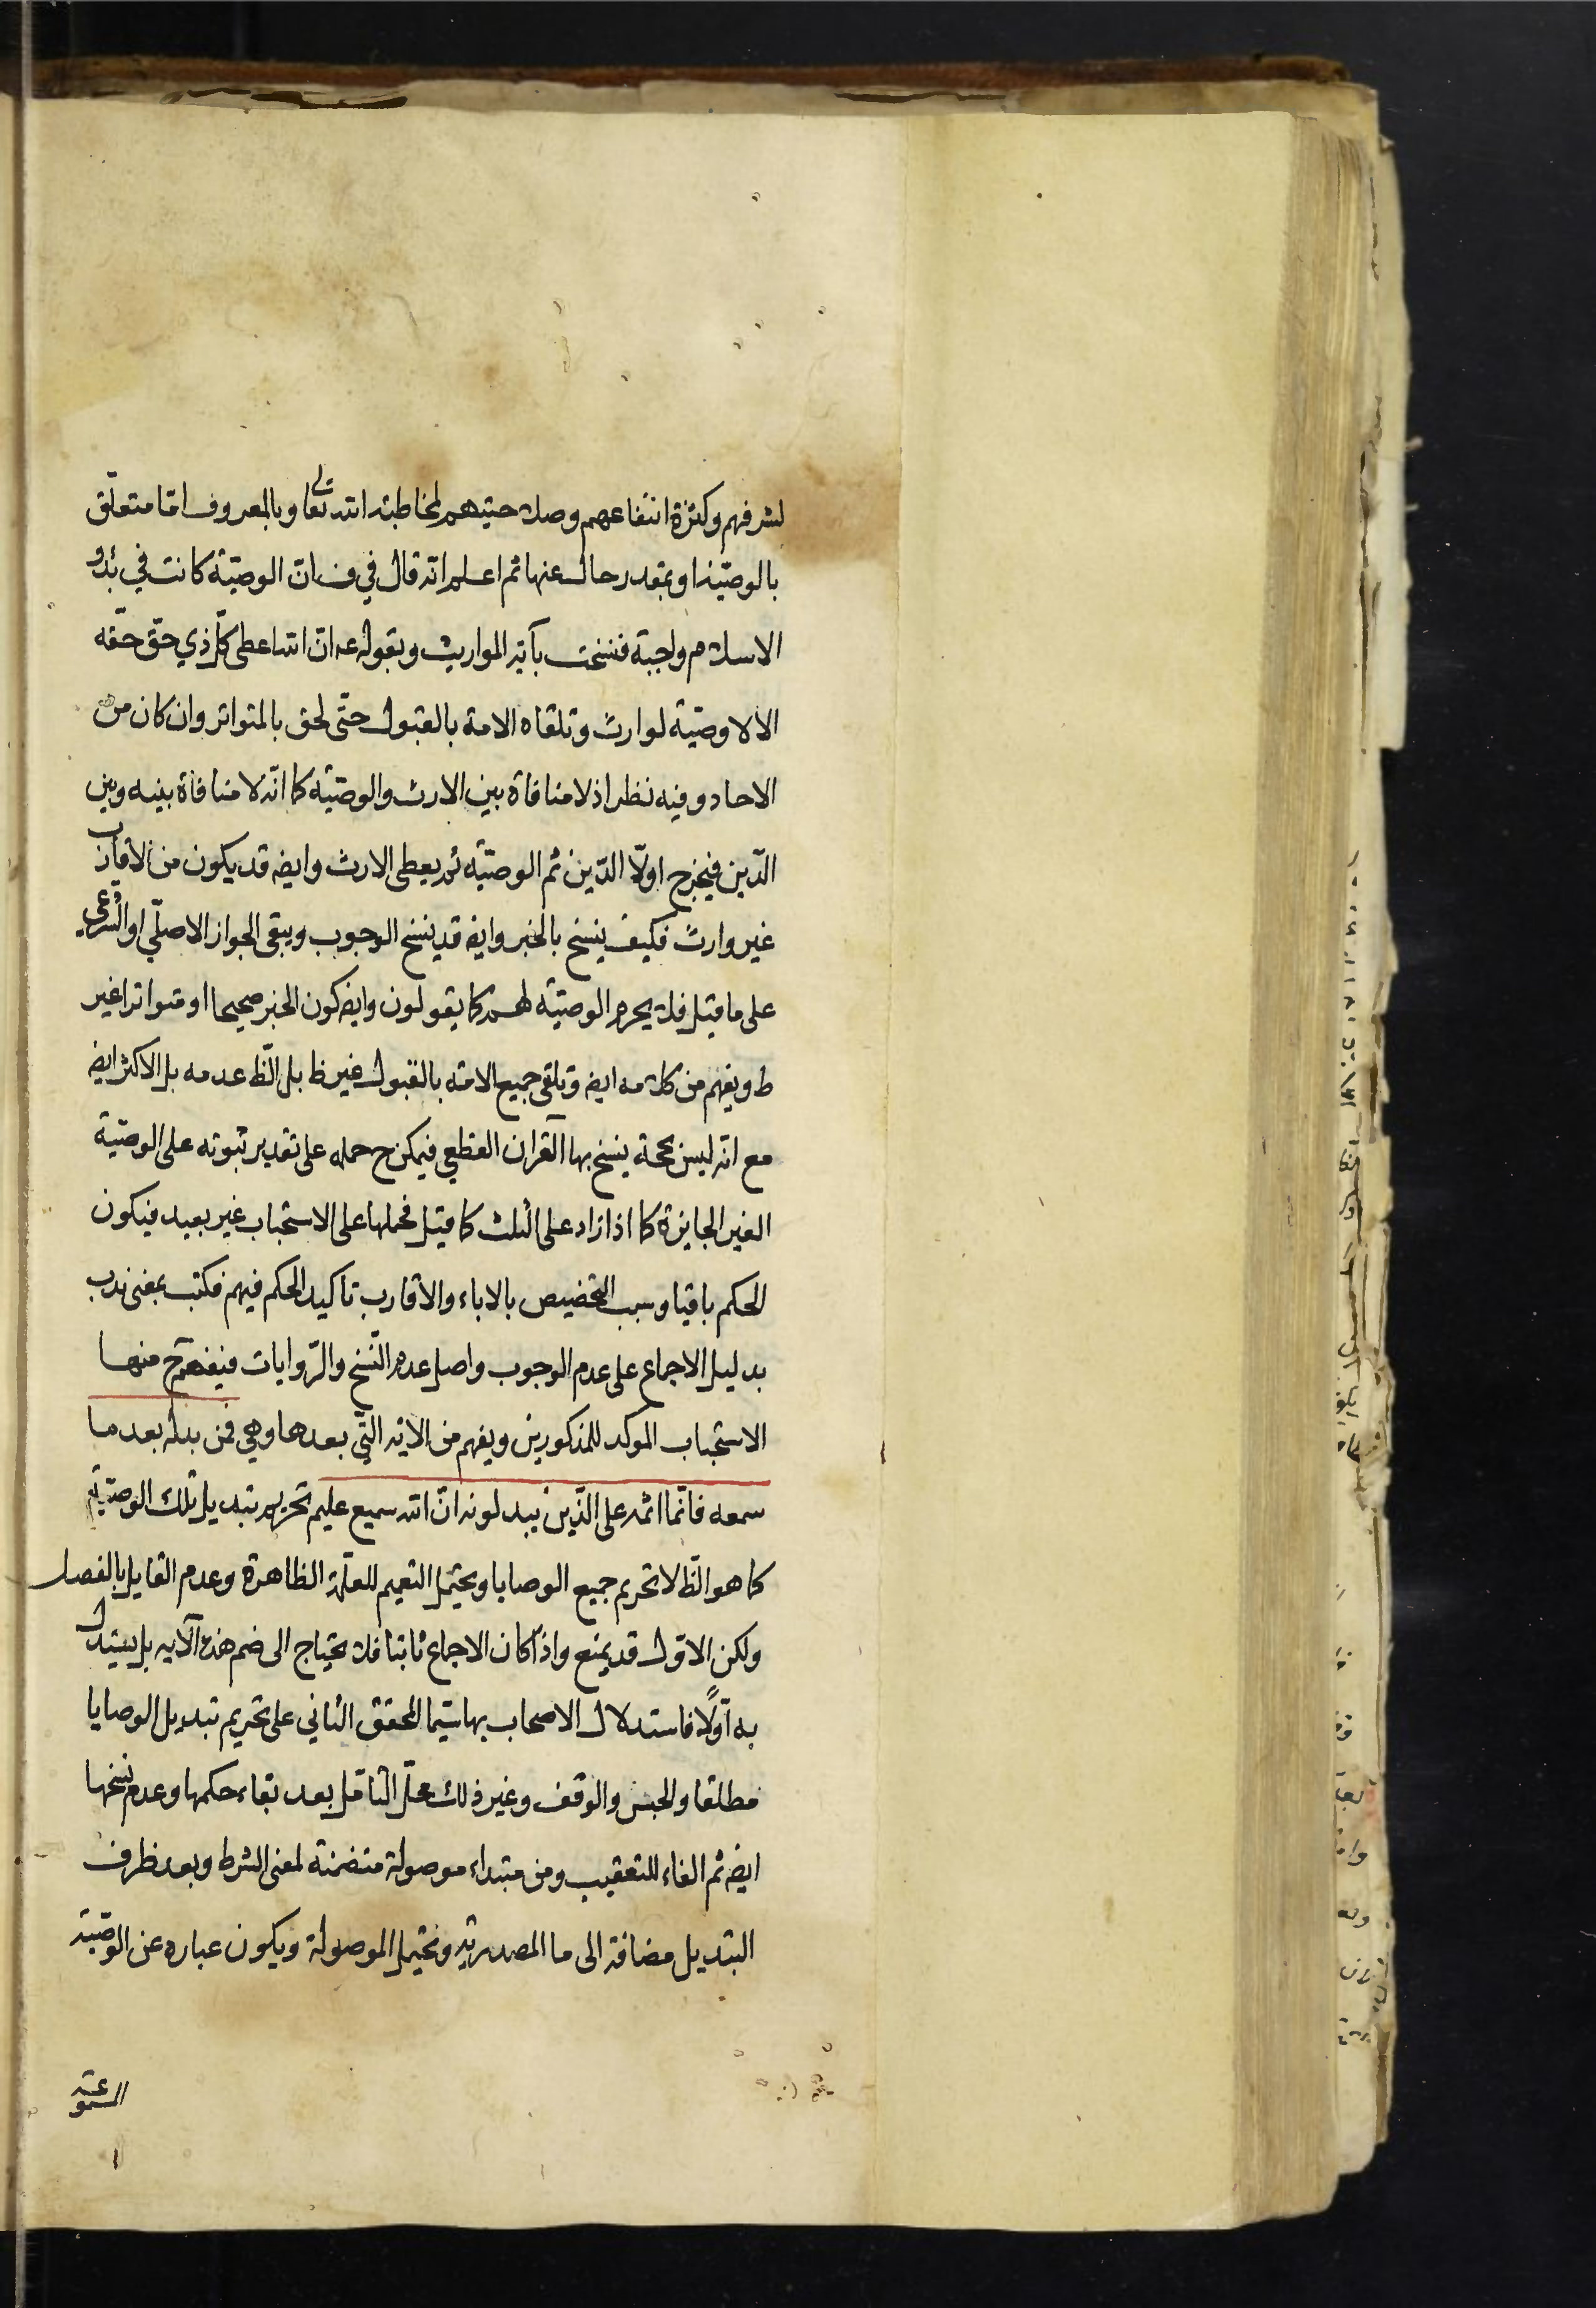 لشرفهم وكثرة انتفاعهم وصلاحيتهم لمخاطبة الله تعالى وبالمعروف اما متعلّق
بالوصيّة او بمقدر حال عنها ثم اعلم انّه قال في ف انّ الوصيّة كانت في بُدو
الاسلام واجبة فنسخت بآية المواريث وبقوله عه انّ الله اعطى كلّ ذي حقّ حقّه
الا لا وصيّة لوارث وتلقاه الامة بالقبول حتّى لحق بالمتواتر وان كان من
الاحاد وفيه نظر اذ لا منافاة بين الارث والوصيّة كما انّه لا منافاة بينه وبين
الدّين فيخرج اولًا الدّين ثم الوصيّة ثم يعطى الارث وايضه قد يكون من الاقارب
غير وارث فكيف ينسخ بالخبر وايضه قد ينسخ الوجوب ويبقى الجواز الاصلّي او الشرعي
على ما قيل فلا يحرم الوصيّة لهم كما يقولون وايضه كون الخبر صحيحا او متواترا غير
ظ ويفهم من كلامه ايضه وتلقى جميع الامة بالقبول غير ظ بل الظّ عدمه بل الاكثر ايضه
مع انّه ليس بحجة ينسخ بها القران القطعي فيمكن ح حمله على تقدير ثبوته على الوصيّة
الغير الجايزة كما اذا زاد على الثلث كما قيل فحملها على الاستحباب غير بعيد فيكون
الحكم باقيا وسبب التخصيص بالاباء والاقارب تاكيد الحكم فيهم فكتب بمعنى ندب
بدليل الاجماع على عدم الوجوب واصل عدم النّسخ والرّوايات فيفهم ح منها
الاستحباب الموكد للمذكورين ويفهم من الاية التّي بعدها وهي فمن بدله بعد ما
سمعه فانّما اثمه على الذّين يبدلونه انّ الله سميع عليم تحريم تبديل تلك الوصيّة
كما هو الظّ لا تحريم جميع الوصايا ويحتمل التعميم للعلّة الظاهرة وعدم القايل بالفصل
ولكن الاوّل قد يمنع واذا كان الاجماع ثابتا فلا يحتاج الى ضم هذه الآيه بل يستدل
به اوّلًا فاستدلال الاصحاب بها سيّما المحقق الثاني على تحريم تبديل الوصايا
مطلقا والحبس والوقف وغير ذلك محلّ التّامل بعد بقاء حكمها وعدم نسخها
ايضه ثم الفاء للتعقيب ومن مبتداء موصولة متضمنة لمعنى الشرط وبعد ظرف
التبديل مضافة الى ما المصدريّة ويحتمل الموصولة ويكون عباره عن الوصيّة
المسموعة